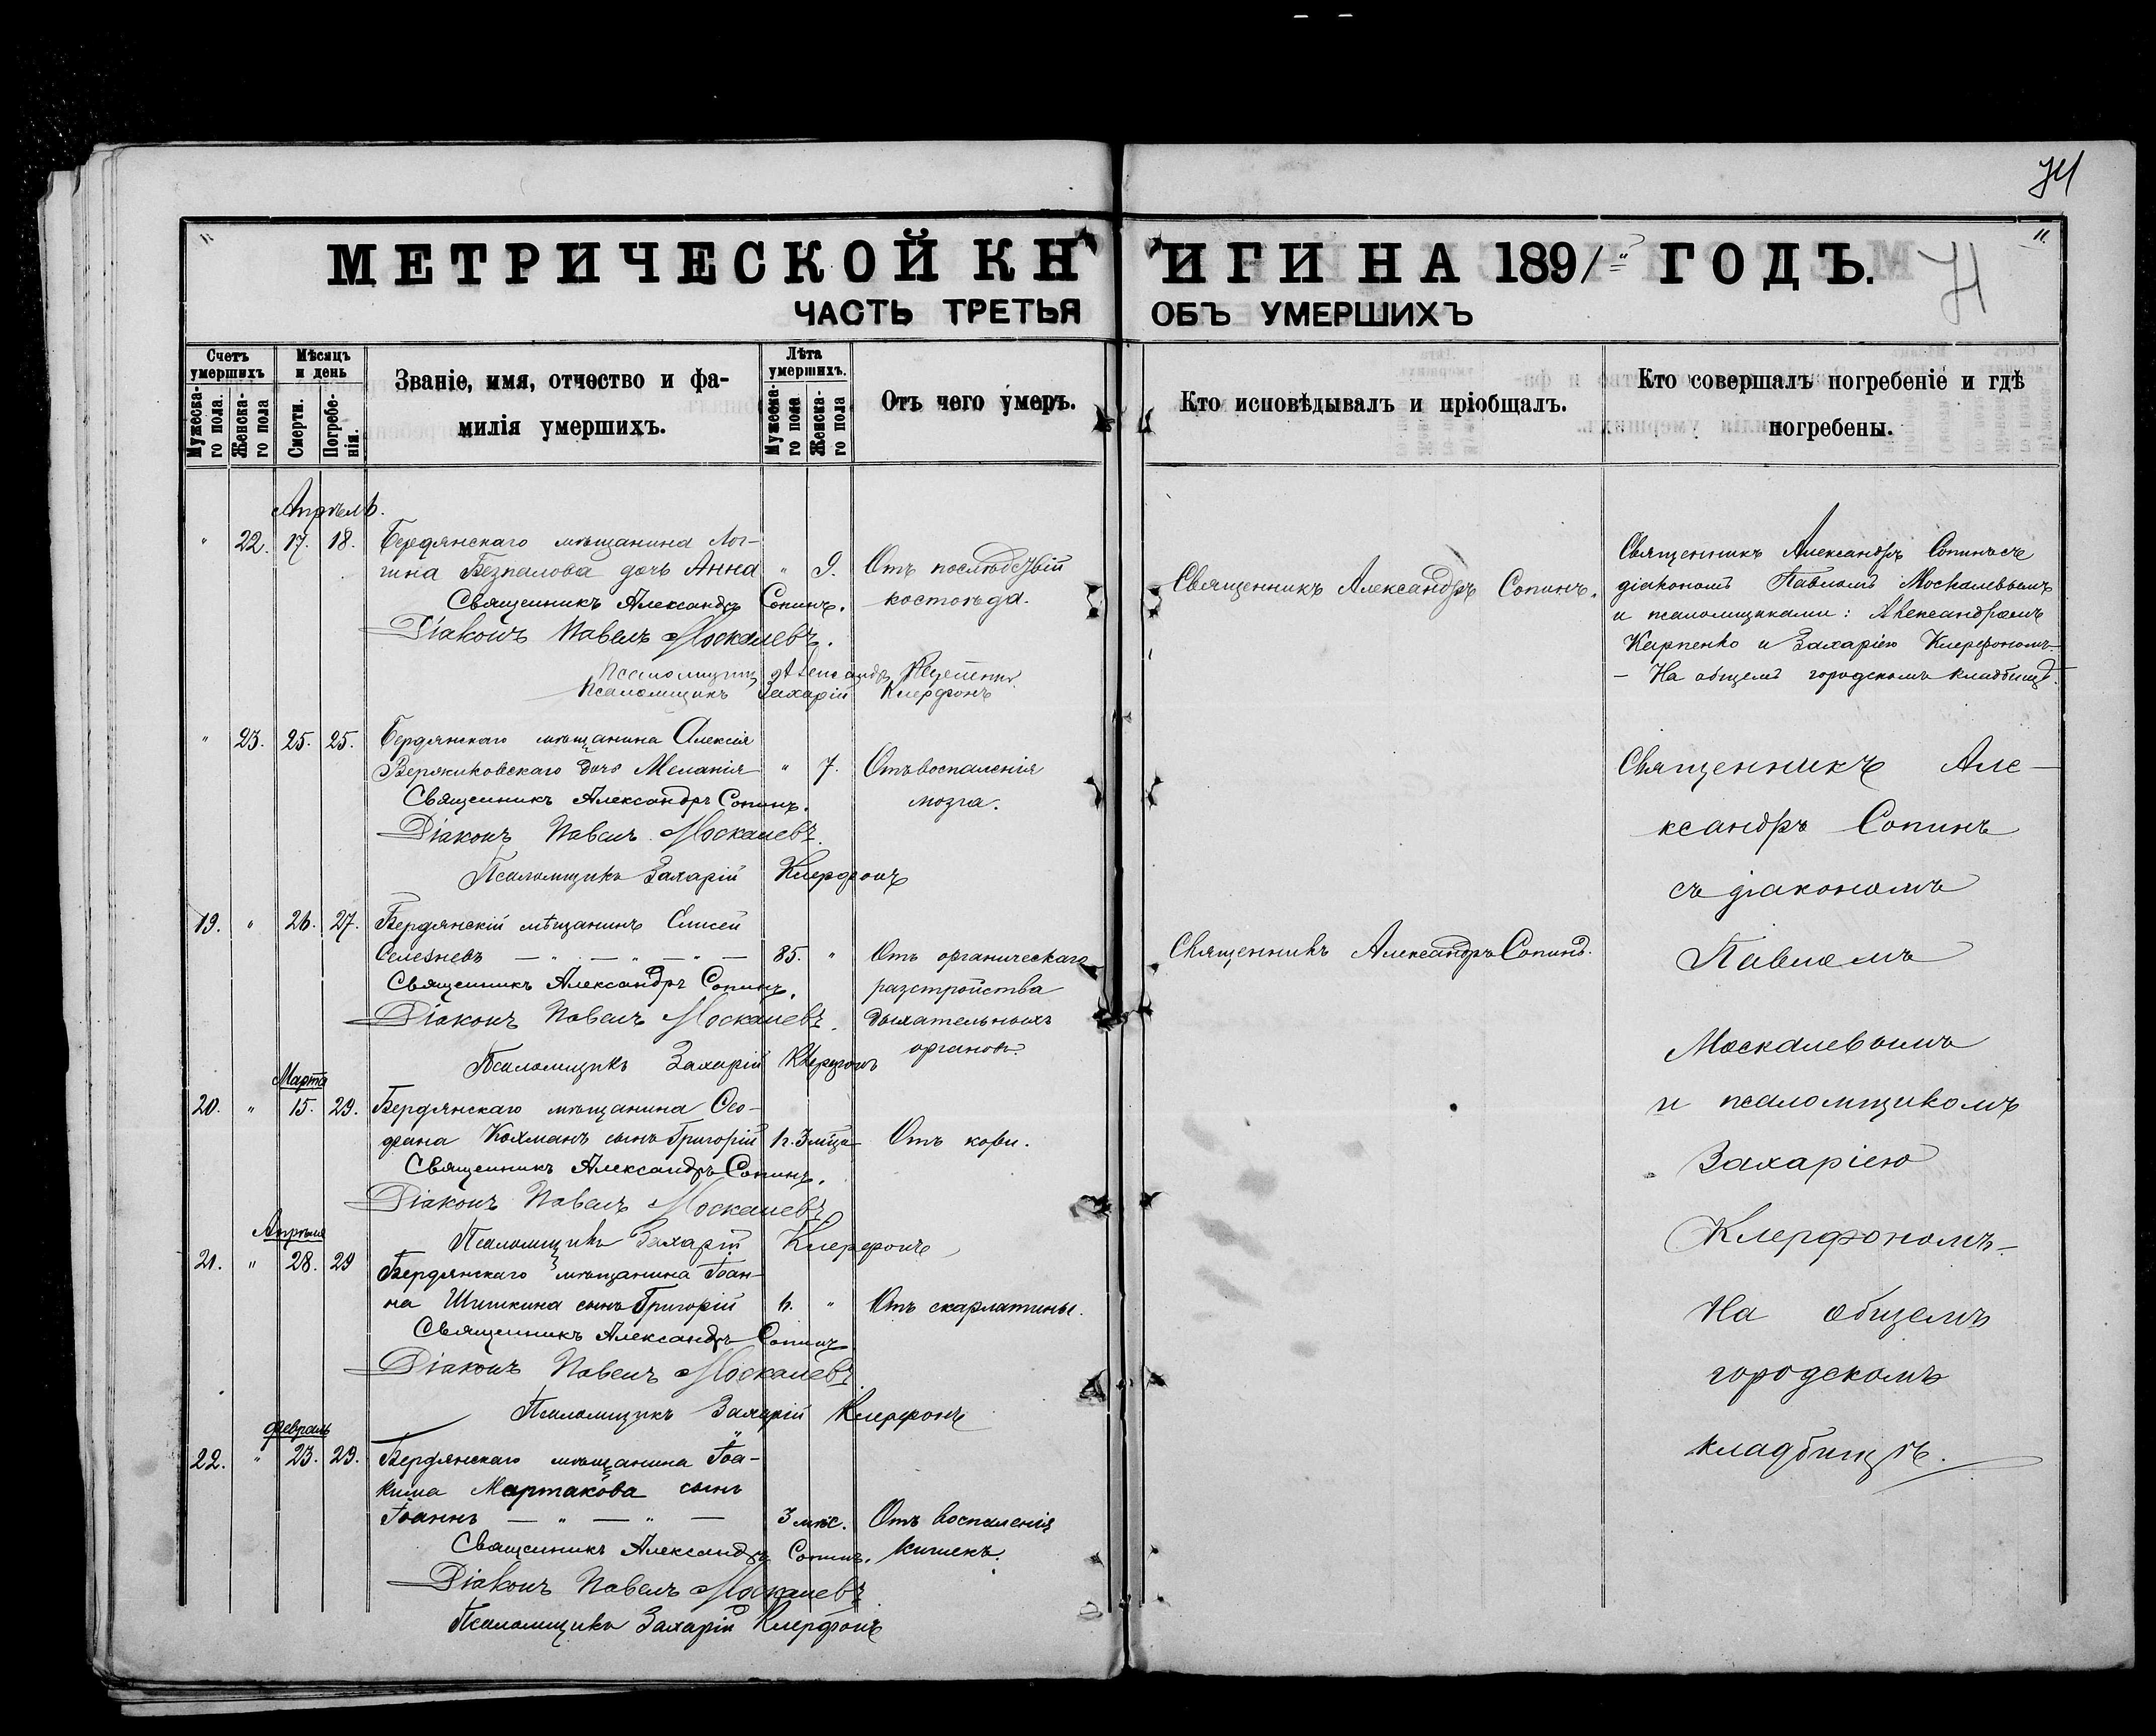 74
МЕТРИЧЕСКОЙ КНИГИ НА 1891 ГОДЪ.
11.
ЧАСТЬ ТРЕТЬЯ ОБЪ УМЕРШИХЪ
Счетъ умершихъ
Мужеска-го пола.
Женска-го пола
Мѣсяцъ и день
Смерти.
Погребе-нія.
Званіе, имя, отчество и фа-
милія умершихъ.
Лѣта умершихъ.
Мужеска-го пола
Женска-го пола
Отъ чего умеръ.
Кто исповѣдывалъ и пріобщалъ.
Кто совершалъ погребеніе и гдѣ
погребены.
Апрѣль.
" 22. 17. 18. Бердянскаго мѣщанина Лог-
гина Безпалова дочь Анна " 9. Отъ послѣдствій
костоѣда.
Священникъ Александръ Сопинъ.
Діаконъ Павелъ Москалевъ.
Псаломщикъ Александръ
Псаломщикъ Захарій Клерфонъ
Священникъ Александръ Сопинъ.
Священникъ Александръ Сопинъ съ
діакономъ Павломъ Москалевымъ
и псаломщиками: Александромъ
Карпенко и Захаріею Клерфономъ.
– На общемъ городскомъ кладбищѣ.
" 23. 25. 25. Бердянскаго мѣщанина Алексія
Вержиковскаго дочь Меланія " 7. Отъ воспаленія
мозга.
Священникъ Александръ Сопинъ.
Діаконъ Павелъ Москалевъ.
Псаломщикъ Захарій Клерфонъ
19. " 26. 27. Бердянскій мѣщанинъ Елисей
Селезневъ — " — " — " — 85. " Отъ органическаго
разстройства
дыхательныхъ
органовъ.
Священникъ Александръ Сопинъ.
Діаконъ Павелъ Москалевъ.
Псаломщикъ Захарій Клерфонъ
Священникъ Александръ Сопинъ.
Марта
20. " 15. 29. Бердянскаго мѣщанина Ѳео-
фана Кохманъ сынъ Григорій 1 г. 3 мѣсца Отъ кори.
Священникъ Александръ Сопинъ.
Діаконъ Павелъ Москалевъ
Псаломщикъ Захарій Клерфонъ
Апрѣля
21. " 28. 29 Бердянскаго мѣщанина Іоан-
на Шишкина сынъ Григорій 6. " Отъ скарлатины.
Священникъ Александръ Сопинъ
Діаконъ Павелъ Москалевъ
Псаломщикъ Захарій Клерфонъ
Февраль
22. " 23. 29. Бердянскаго мѣщанина Іоа-
кима Мартакова сынъ
Іоаннъ — " — " — 3 мѣс. Отъ воспаленія
кишекъ.
Священникъ Александръ Сопинъ.
Діаконъ Павелъ Москалевъ
Псаломщикъ Захарій Клерфонъ
Священникъ Але-
ксандръ Сопинъ
съ діакономъ
Павломъ
Москалевымъ
и псаломщикомъ
Захаріею
Клерфономъ –
На общемъ
городскомъ
кладбищѣ.